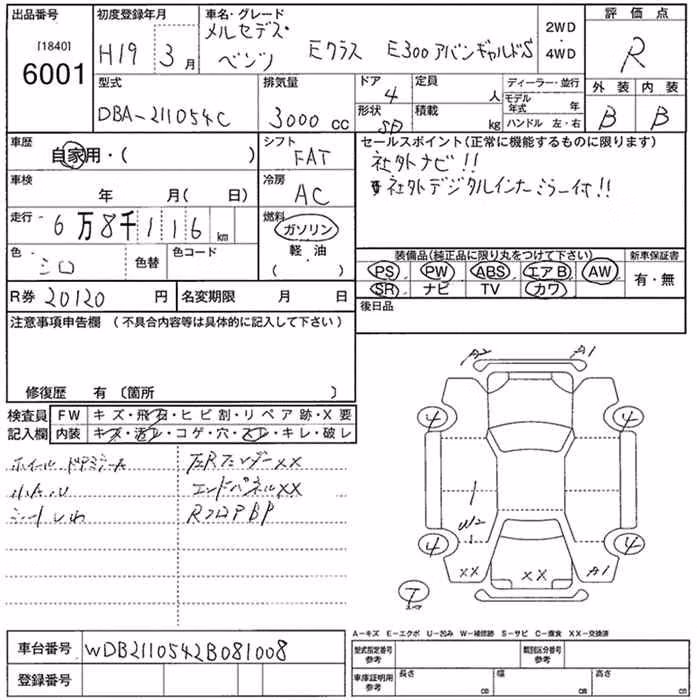 出品番号
[1840]
6001
初度登録年月
H19 3月
車名・グレード
メルセデス・
ベンツ Eクラス E300アバンギャルドS
2WD
・
4WD
評価点
R
外装 内装
B B
型式
DBA-211054C
排気量
3000 cc
ドア
4
形状
SD
定員
人
積載
kg
ディーラー・並行
モデル年式 年
ハンドル 左・右
車歴
自家用・( )
シフト
FAT
車検
年 月( 日)
冷房
AC
走行
6万8千116 km
燃料
ガソリン
軽・油
・
( )
色
シロ
色替
色コード
R券 20120 円
名変期限 月 日
セールスポイント(正常に機能するものに限ります)
社外ナビ!!
社外デジタルインナーミラー付!!
装備品(純正品に限り丸をつけて下さい)
PS PW ABS エアB AW
SR ナビ TV カワ
新車保証書
有・無
後日品
注意事項申告欄(不具合内容等は具体的に記入して下さい)
修復歴 有〔箇所 〕
検査員
記入欄
FW キズ・飛石・ヒビ割・リペア跡・X要
内装 キズ・汚レ・コゲ・穴・スレ・キレ・破レ
シートしわ
左Rフェンダーxx
エンドパネルxx
RフロアBP
A2 A1
4 4
W2
4 4
XX XX A1
T
A-キズ E-エクボ U-凹み W-補修跡 S-サビ C-腐食 XX-交換済
車台番号 WDB2110542B081008
登録番号
型式指定番号
参考
類別区分番号
参考
車庫証明用
参考
長さ cm
幅 cm
高さ cm